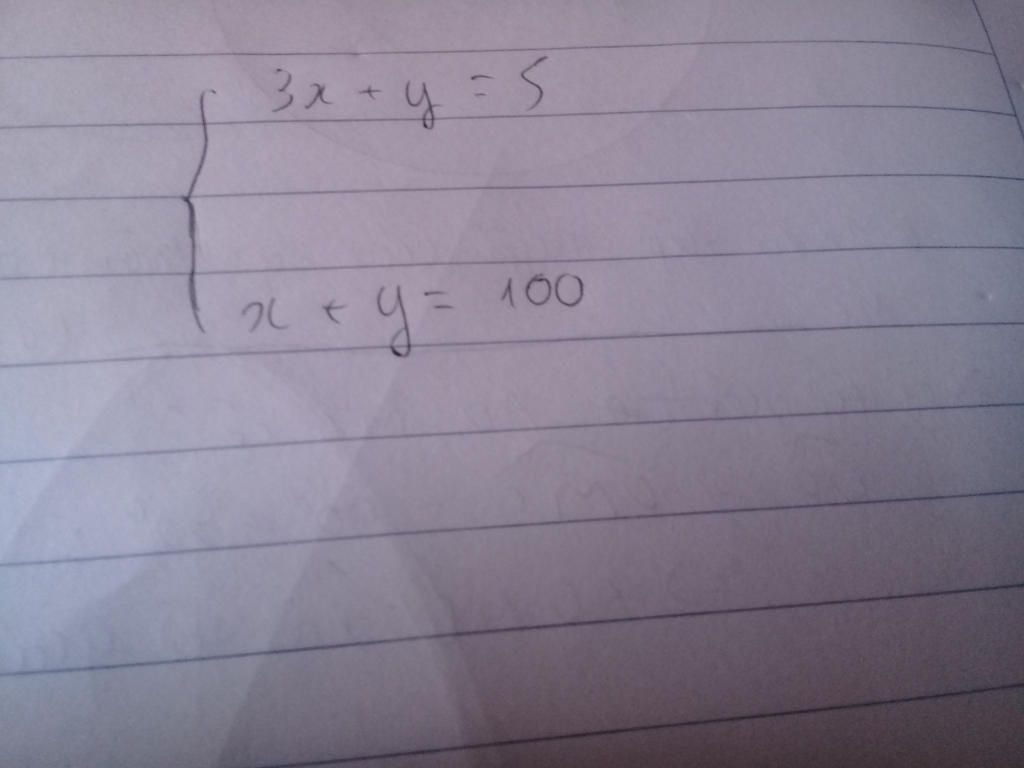 3x + y = 5
x + y = 100